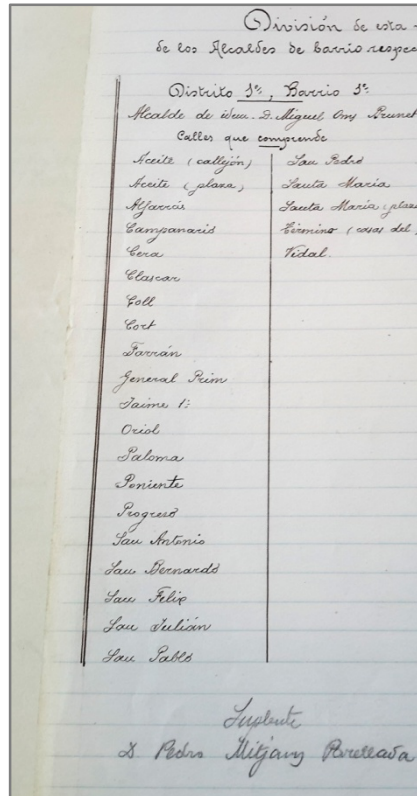 División de esta
de los Alcaldes de barrio respec
Distrito 1º, Barrio 1º
Alcalde de idem. D. Miguel Oms Brunet
Calles que comprende
Aceite (callejón)
Aceite (plaza)
Alfarrás
Campanario
Cera
Clascar
Coll
Cort
Farrán
General Prim
Jaime 1º
Oriol
Paloma
Poniente
Progreso
San Antonio
San Bernardo
San Felix
San Julián
San Pablo
San Pedro
Santa María
Santa María (plaz
Término (casas del
Vidal.
Suplente
D. Pedro Mitjans